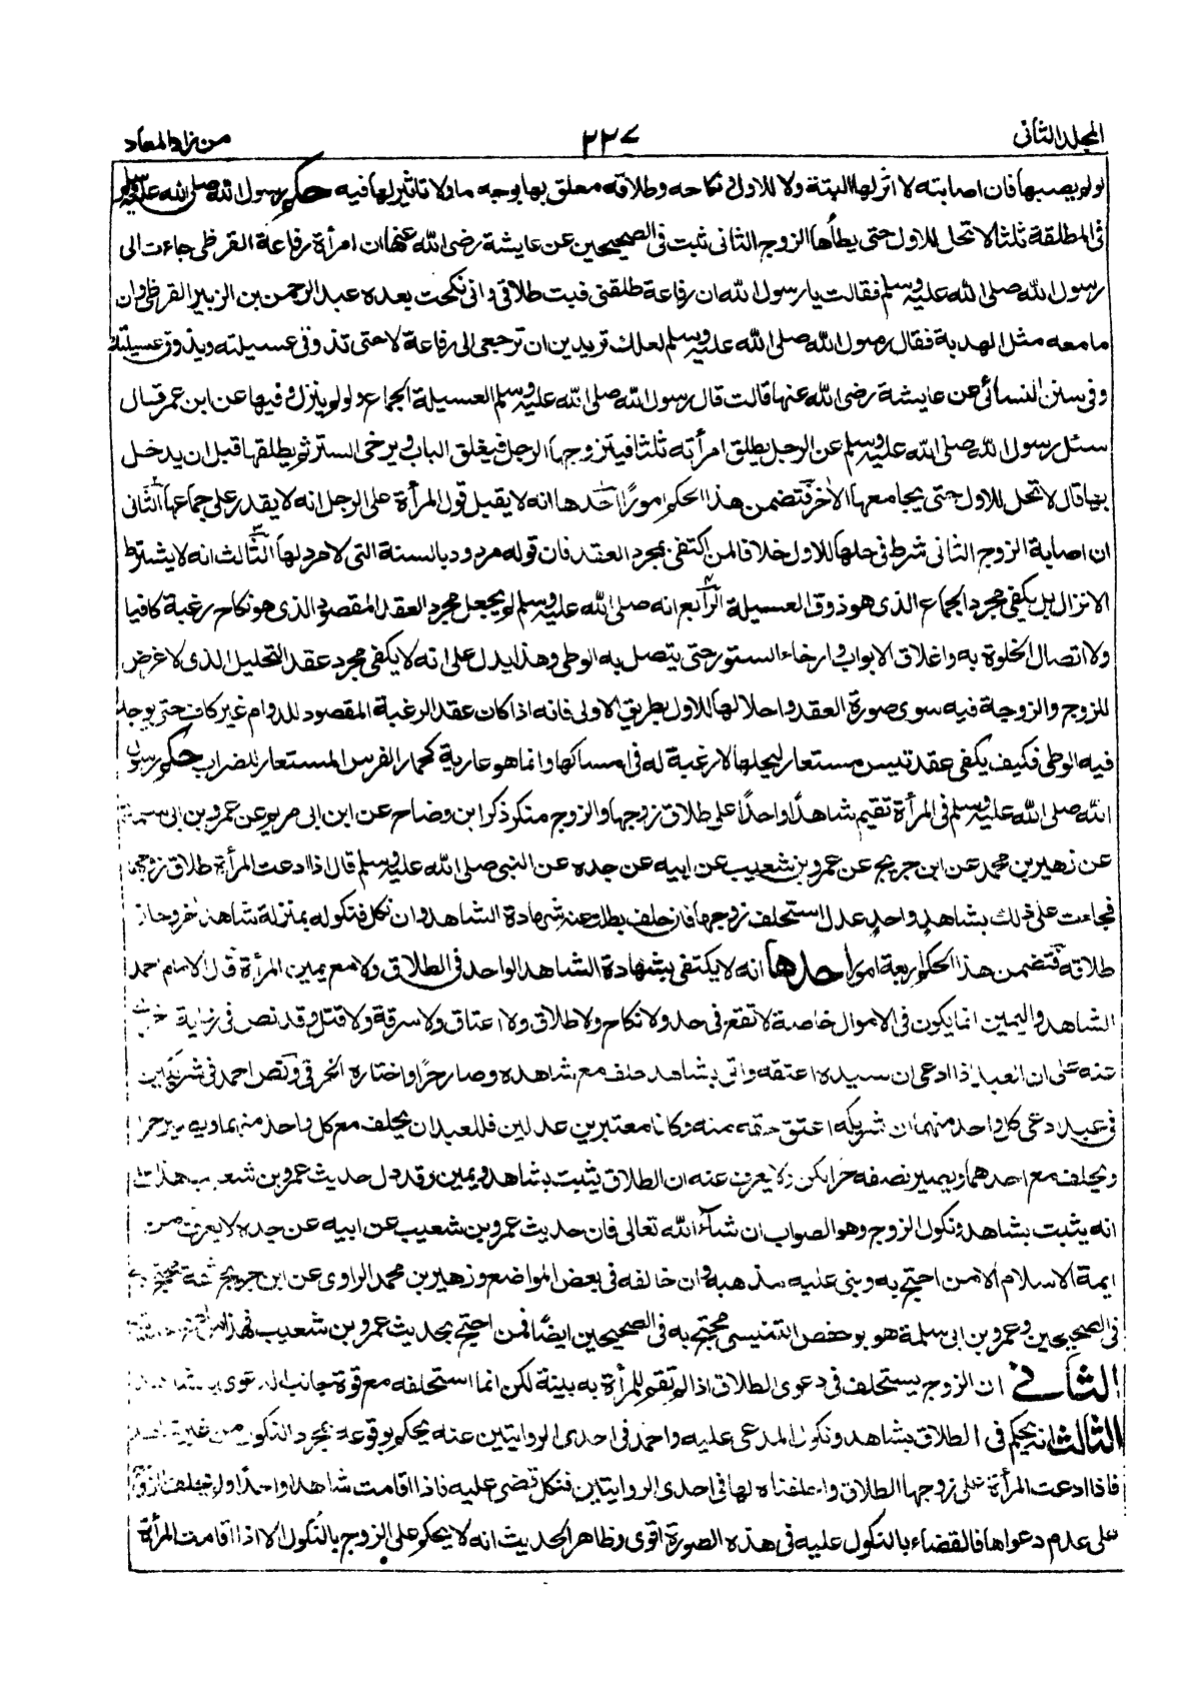 المجلد الثانى
٢٢٧
من زاد المعاد
لو لم يصبها فان اصابته لا اثر لها البتة ولا للاول فى نكاحه وطلاقه معلق بها بوجه ما ولا تاثير لها فيه حكم رسول الله صلى الله عليه وسلم
فى المطلقة ثلثا لا تحل للاول حتى يطأها الزوج الثانى ثبت فى الصحيحين عن عايشة رضى الله عنها ان امرأة رفاعة القرظى جاءت الى
رسول الله صلى الله عليه وسلم فقالت يا رسول الله ان رفاعة طلقنى فبت طلاقى وانى نكحت بعده عبد الرحمن بن الزبير القرظى وان
ما معه مثل الهدبة فقال رسول الله صلى الله عليه وسلم لعلك تريدين ان ترجعى الى رفاعة لا حتى تذوقى عسيلته ويذوق عسيلتك
وفى سنن النسائى عن عايشة رضى الله عنها قالت قال رسول الله صلى الله عليه وسلم العسيلة الجماع ولو لم ينزل وفيها عن ابن عمر قال
سئل رسول الله صلى الله عليه وسلم عن الرجل يطلق امرأته ثلثا فيتزوجها الرجل فيغلق الباب ويرخى الستر ثم يطلقها قبل ان يدخل
بها قال لا تحل للاول حتى يجامعها الاخر فتضمن هذا الحكم امورًا احدها انه لا يقبل قول المرأة على الرجل انه لا يقدر على جماعها الثانى
ان اصابة الزوج الثانى شرط فى حلها للاول خلافا لمن اكتفى بمجرد العقد فان قوله مردود بالسنة التى لا مرد لها الثالث انه لا يشترط
الانزال بل يكفى مجرد الجماع الذى هو ذوق العسيلة الرابع انه صلى الله عليه وسلم لم يجعل مجرد العقد المقصود الذى هو نكاح رغبة كافيا
ولا اتصال الخلوة به واغلاق الابواب وارخاء الستور حتى يتصل به الوطى وهذا يدل على انه لا يكفى مجرد عقد التحليل الذى لا غرض
للزوج والزوجة فيه سوى صورة العقد واحلالها للاول بطريق الاولى فانه اذا كان عقد الرغبة المقصود للدوام غير كاف حتى يوجد
فيه الوطى فكيف يكفى عقد تيس مستعار ليحلها لا رغبة له فى امساكها وانما هو عارية كحمار الفرس المستعار للضراب حكم رسول
الله صلى الله عليه وسلم فى المرأة تقيم شاهدًا واحدًا على طلاق زوجها والزوج منكر ذكر ابن وضاح عن ابن ابى مريم عن عمرو بن ابى سلمة
عن زهير بن محمد عن ابن جريج عن عمرو بن شعيب عن ابيه عن جده عن النبى صلى الله عليه وسلم قال اذا ادعت المرأة طلاق زوجها
فجاءت على ذلك بشاهد واحد عدل استحلف زوجها فان حلف بطلت عنه شهادة الشاهد وان نكل فنكوله بمنزلة شاهد اخر وجاز
طلاقه فتضمن هذا الحكم اربعة امور احدها انه لا يكتفى بشهادة الشاهد الواحد فى الطلاق ولا مع يمين المرأة قال الامام احمد
الشاهد واليمين انما يكون فى الاموال خاصة لا تقع فى حد ولا نكاح ولا طلاق ولا اعتاق ولا سرقة ولا قتل وقد نص فى رواية
عنه على ان العبد اذا ادعى ان سيده اعتقه واتى بشاهد حلف مع شاهده وصار حرًا واختاره الخرقى ونص احمد فى شريكين
فى عبد ادعى كل واحد منهما ان شريكه اعتق حقه منه وكانا معتبرين عدلين فللعبد ان يحلف مع كل واحد منهما ويصير حرا
ويحلف مع احدهما ويصير نصفه حرا لكن لا يعرف عنه ان الطلاق يثبت بشاهد ويمين وقد دل حديث عمرو بن شعيب هذا
انه يثبت بشاهد ونكول الزوج وهو الصواب ان شاء الله تعالى فان حديث عمرو بن شعيب عن ابيه عن جده لا يعرف من
ايمة الاسلام الا من احتج به وبنى عليه مذهبه وان خالفه فى بعض المواضع وزهير بن محمد الراوى عن ابن جريج ثقة محتج به
فى الصحيحين وعمرو بن ابى سلمة هو بو حفص التنيسى محتج به فى الصحيحين ايضًا فمن احتج بحديث عمرو بن شعيب فهذا
الثانى ان الزوج يستحلف فى دعوى الطلاق اذا لم تقم للمرأة به بينة لكن انما استحلفه مع قوة جانب الدعوى
الثالث انه يحكم فى الطلاق بشاهد ونكول المدعى عليه واحمد فى احدى الروايتين عنه يحكم بوقوعه بمجرد النكول من غير
فاذا ادعت المرأة على زوجها الطلاق واحلفناه لها فى احدى الروايتين فنكل قضى عليه فاذا اقامت شاهدا واحدًا ولم يحلف الزوج
على عدم دعواها فالقضاء بالنكول عليه فى هذه الصورة اقوى وظاهر الحديث انه لا يحكم على الزوج بالنكول الا اذا اقامت المرأة